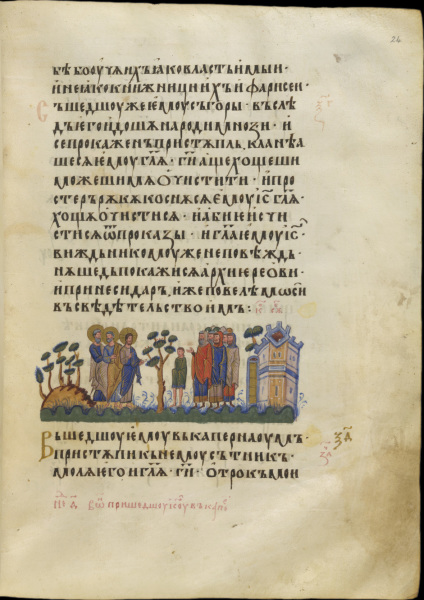 26
бѣ бо оучѧ ихъ ꙗко власть имыи ·
и не ꙗко книжници ихъ и фарисеи ·
съшедшоу же емоу съ горы · въ слѣ
дъ его идошѧ народи мнози · и
се прокаженъ пристѫпль кланѣа
шесѧ емоу гл҃ѧ · г҃и аще хощеши
можеши мѧ очистити · и про
стеръ рѫкѫ коснѧсѧ емоу іс҃ гл҃ѧ
хощѫ очистисѧ · и абие ис чи
стисѧ ѿ проказы · и гл҃а емоу іс҃ ·
виждь никомоу же не повѣждь ·
нѧ шедь покажисѧ архиереови ·
и принеси даръ, иже повелѣ мѡси
въ свѣдѣтельство имъ :
Въшедшоу емоу въ капернаоумъ ·
пристѫпи къ немоу сътникъ
молѧ его и гл҃ѧ · г҃и · отрокъ мои